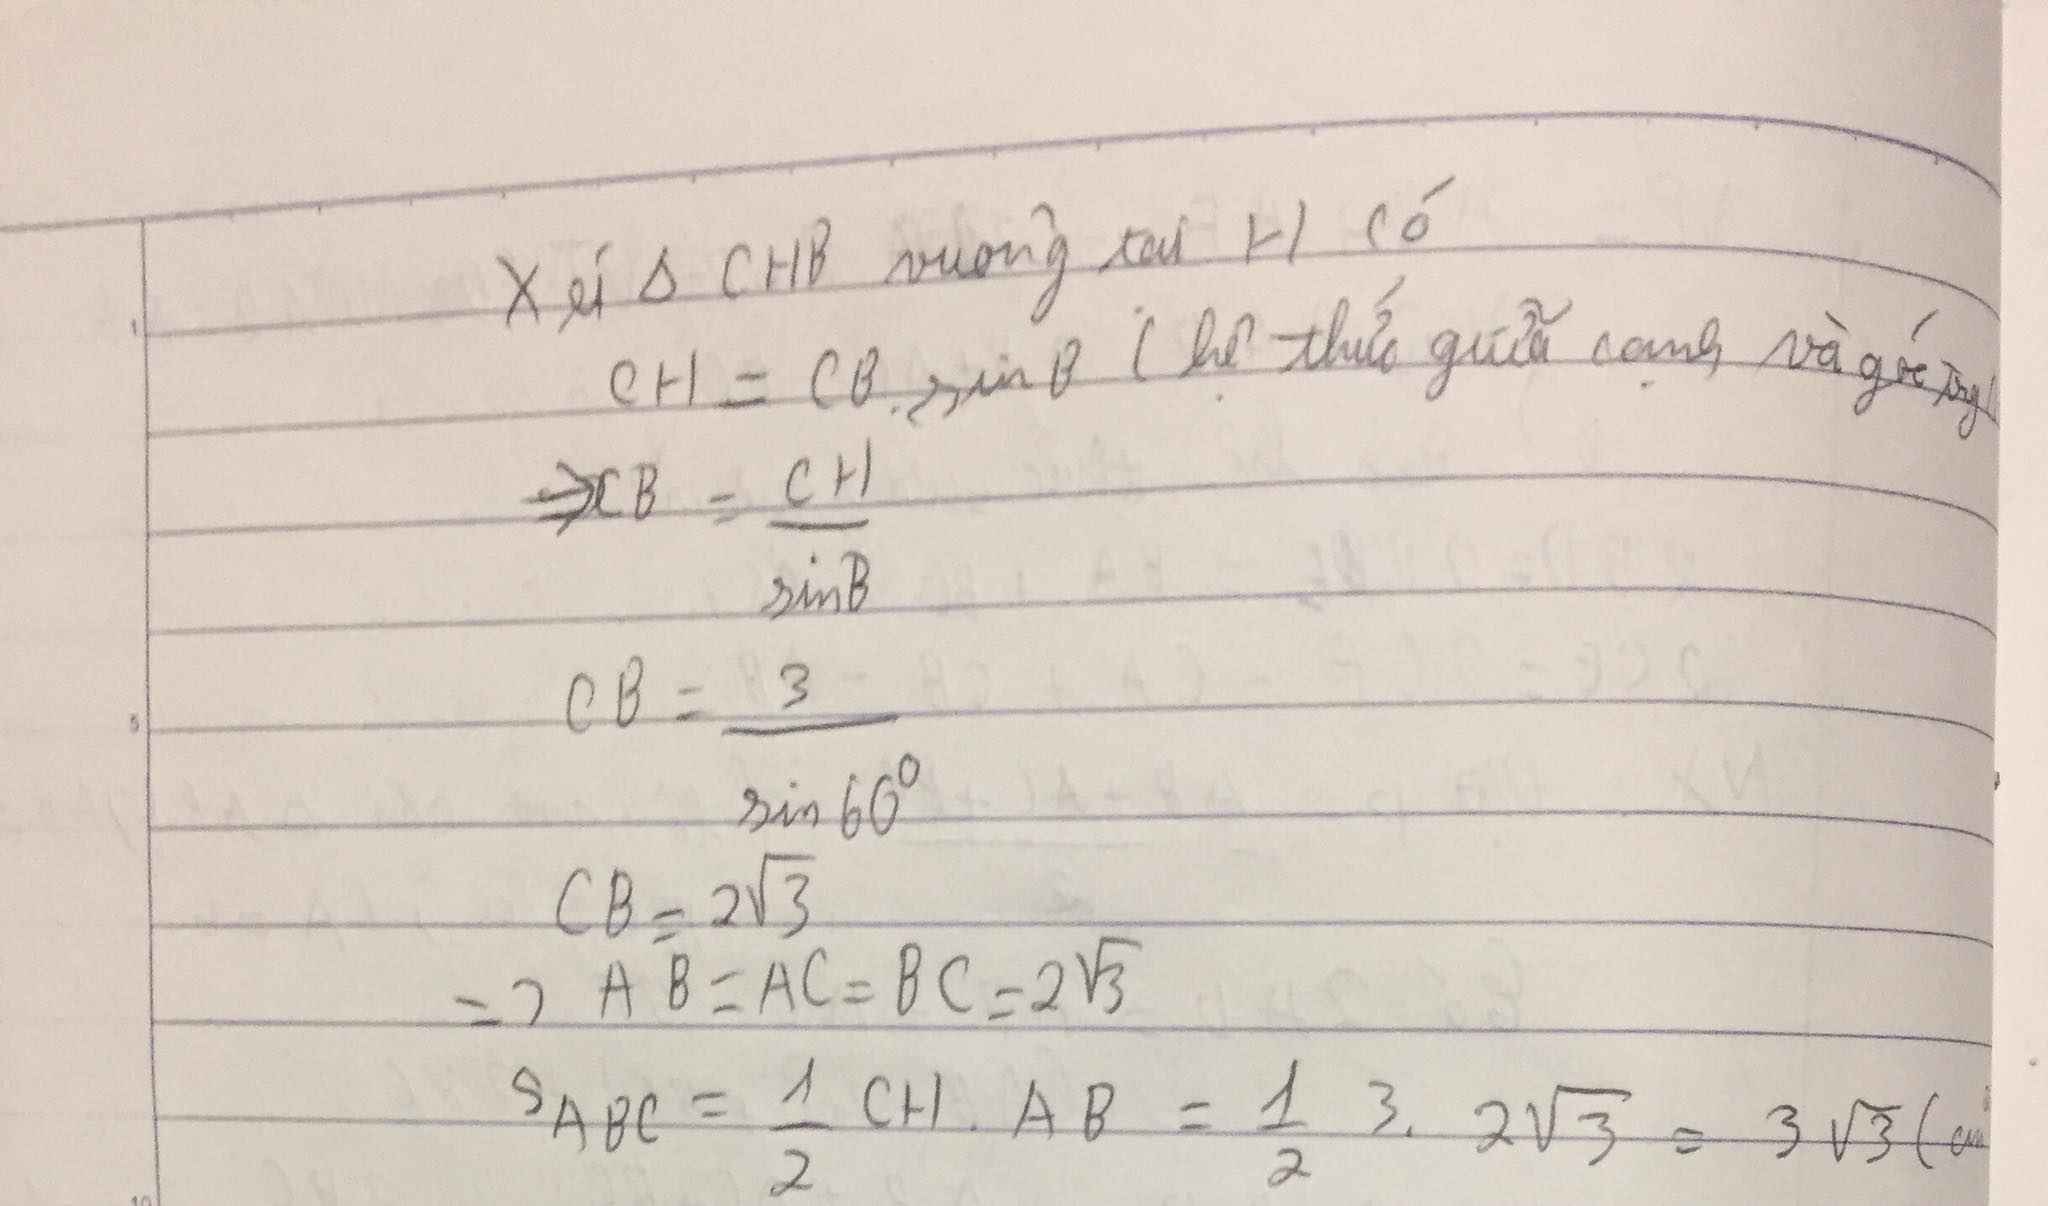 Xét Δ CHB vuông tại H có
CH = CB . sin B ( hệ thức giữa cạnh và góc trg
⇒ CB = CH / sin B
CB = 3 / sin 60⁰
CB = 2√3
=> AB = AC = BC = 2√3
S ABC = 1/2 CH . AB = 1/2 3 . 2√3 = 3√3 (